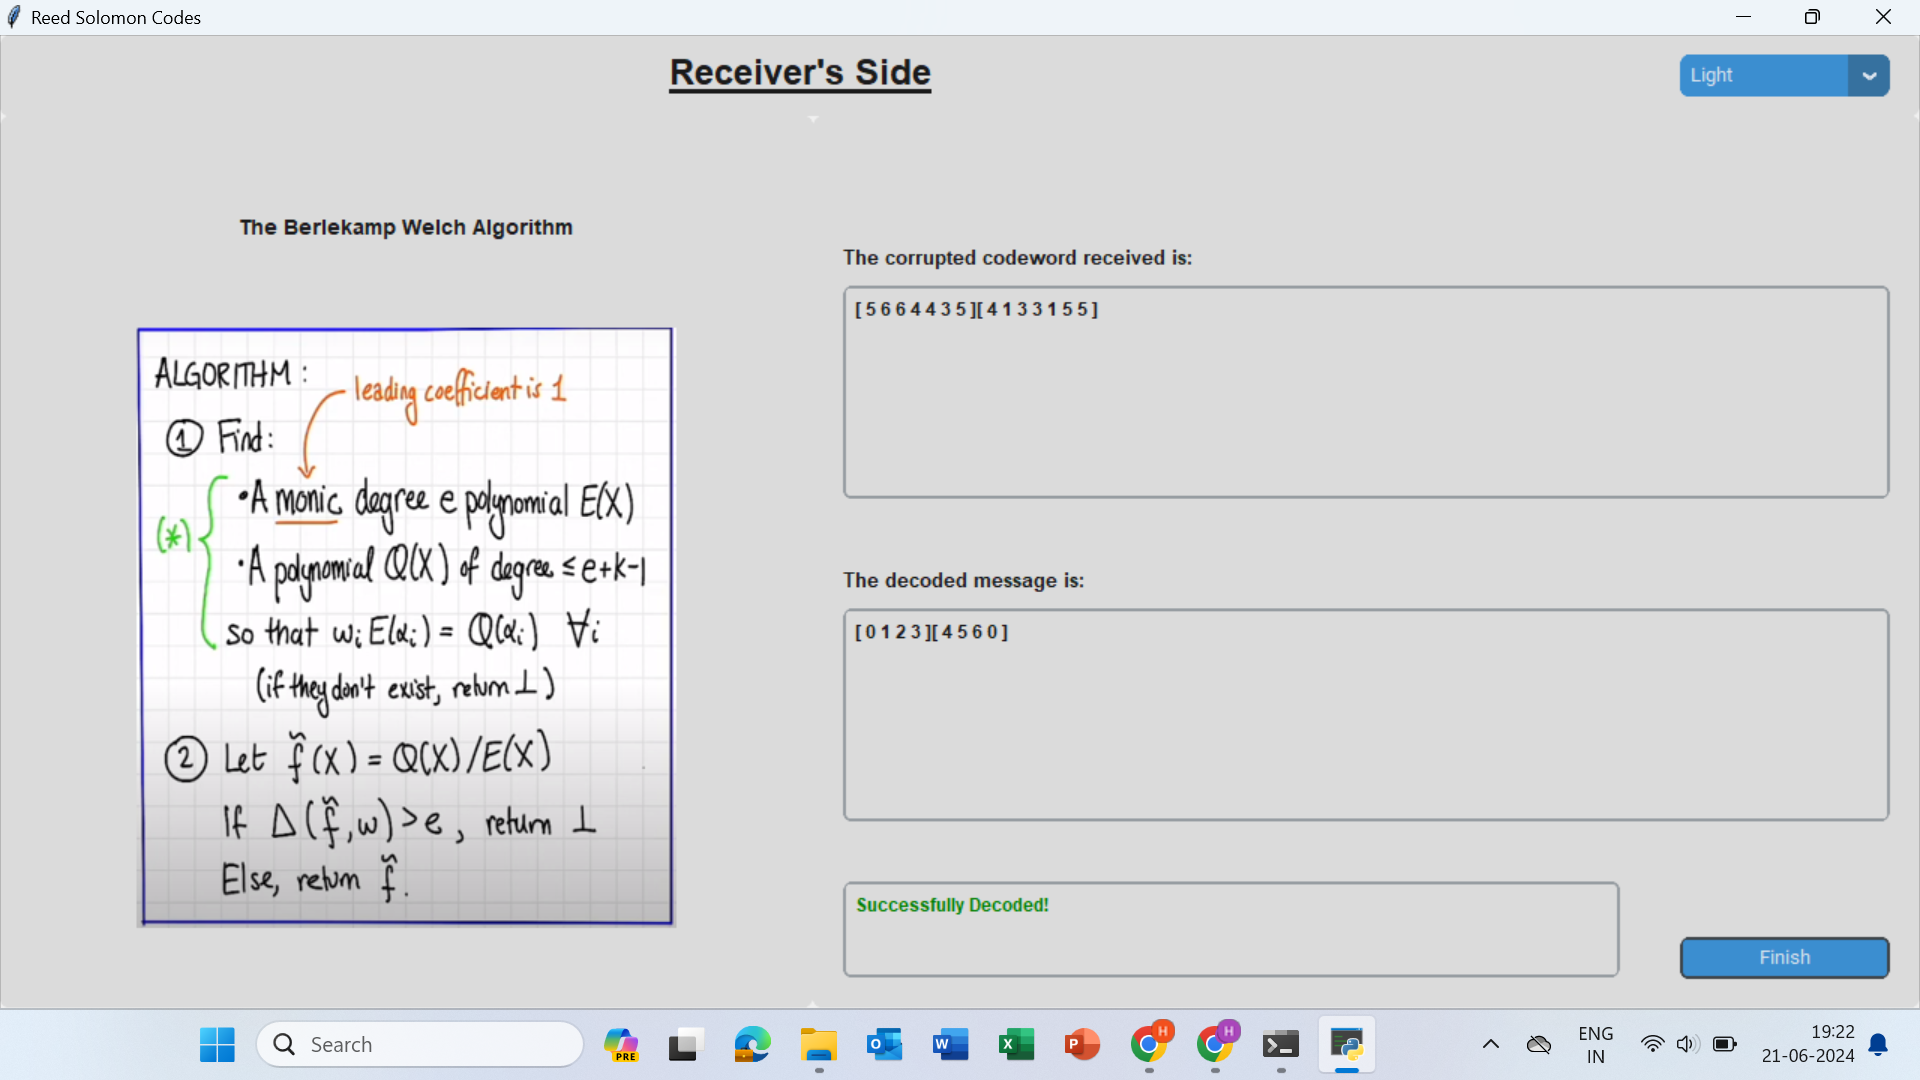 Reed Solomon Codes
Receiver's Side
Light
The Berlekamp Welch Algorithm
ALGORITHM :
leading coefficient is 1
① Find:
(*)
• A monic degree e polynomial E(X)
• A polynomial Q(X) of degree ≤ e+k-1
so that wᵢ E(αᵢ) = Q(αᵢ) ∀i
(if they don't exist, return ⊥)
② Let f̃(X) = Q(X)/E(X)
If Δ(f̃,w) > e, return ⊥
Else, return f̃.
The corrupted codeword received is:
[ 5 6 6 4 4 3 5 ][ 4 1 3 3 1 5 5 ]
The decoded message is:
[ 0 1 2 3 ][ 4 5 6 0 ]
Successfully Decoded!
Finish
Search
PRE
O
W
X
P
H
H
ENG
IN
19:22
21-06-2024